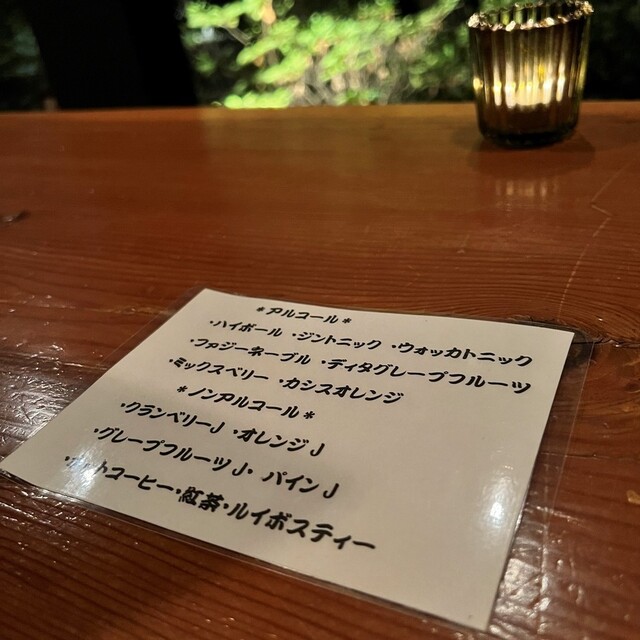 *アルコール*
・ハイボール ・ジントニック ・ウォッカトニック
・ファジーネーブル ・ディタグレープフルーツ
・ミックスベリー ・カシスオレンジ
*ノンアルコール*
・クランベリーJ ・オレンジJ
・グレープフルーツJ・ パインJ
・ホットコーヒー・紅茶・ルイボスティー